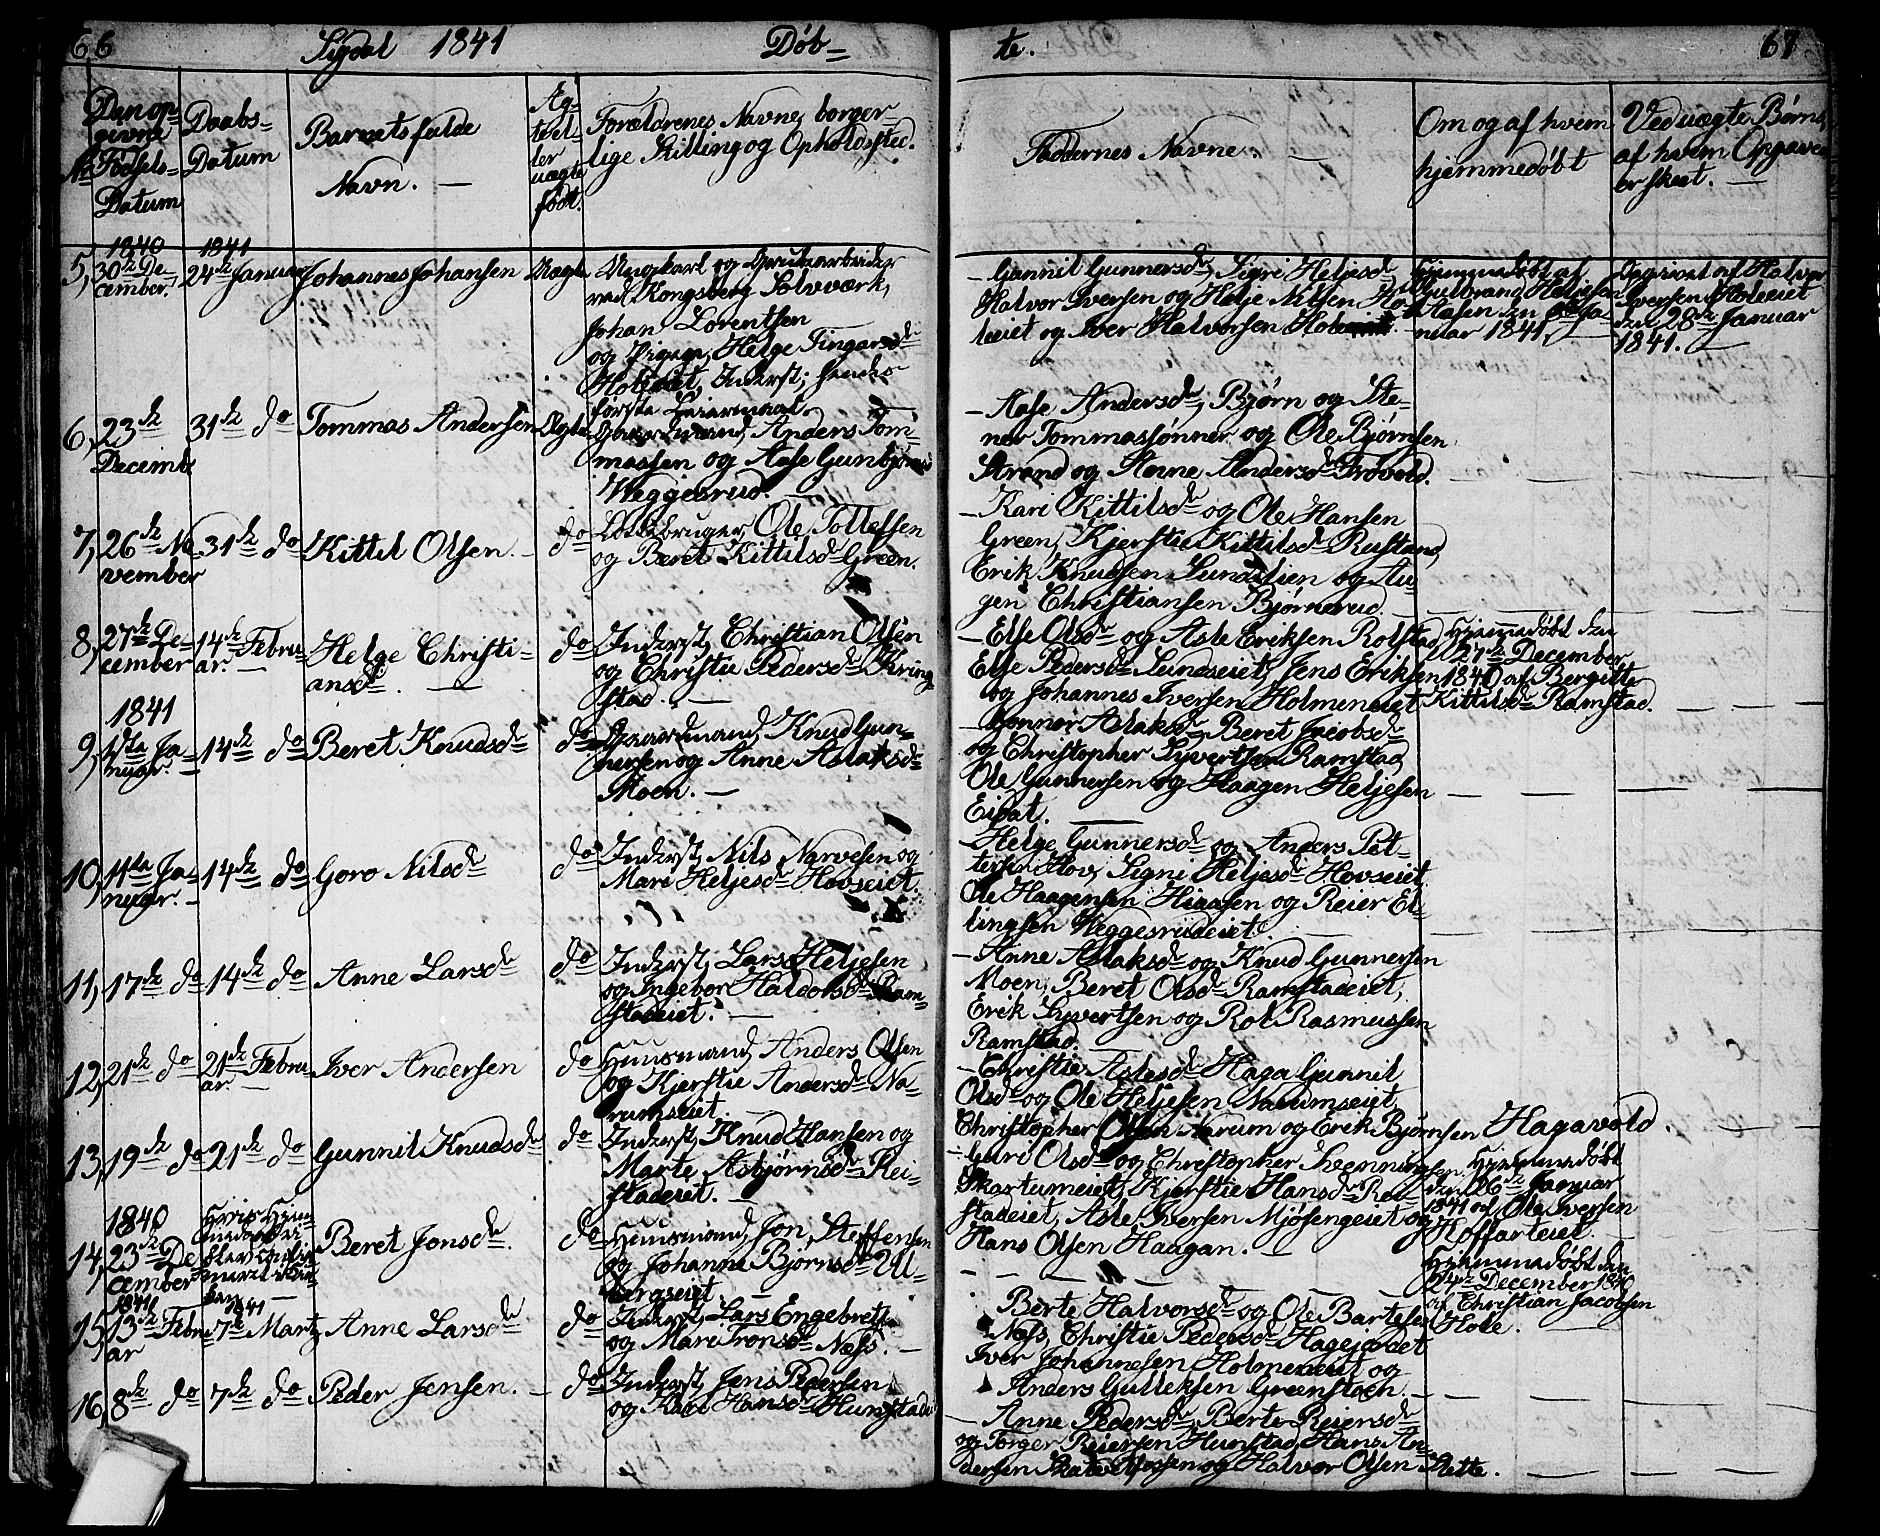 66 Sigdal 1841 Døb-
te. 67
No
Den op-
givne
Fødsels-
Datum
Daabs-
Datum
Barnets fulde
Navn. —
Æg-
te el-
ler
uægte
født.
Forældrenes Navne, borger-
lige Stilling og Opholdssted.
Faddernes Navne. —
Om og af hvem
hjemmedøbt
Ved uægte Børn,
af hvem Opgaven
er skeet. —
1840 1841
5, 30te De-
cember.
24de Januar
Johannes Johansen
Uægte
Ungkarl og Grubearbeider
ved Kongsberg Sølvværk,
Johan Lorentsen
og Pigen, Helge Fingarsdr
Holeeiet, Inderst; hendes
første Leiermaal.
— Gunnil Gunnersdr, Sigri Heljesdr
Halvor Iversen og Helje Nilsen Ho-
leeiet og Iver Halvorsen
Hjemmedøbt af
Gulbrand Heljesen
Hasen den Ja-
nuar 1841. —
Opgivet af Halvor
Iversen Holeeiet
den 28de Januar
1841. —
6, 23de
Decembr
31te do
Tommas Andersen
Ægte
Gaardmand, Anders Tom-
massen og Aase Gunbjørnsdr
Weggesrud. —
— Aase Andersdr, Bjørn og Ste-
ner Tommassønner og Ole Bjørnsen
Strand og Anne Andersdr Frøvold.
7, 26de No-
vember
31te do
Kittil Olsen. —
do
Ole Tollefsen
og Beret Kittilsdr Green.
— Kari Kittilsdr og Ole Hansen
Green, Kjerstie Kittilsdr Rustand,
Erik Knudsen Lundstien og Au-
gen Christiansen Bjørnerud.
8, 27de De-
cember
14de Febru-
ar. —
Helge Christi-
ansdr. —
do
Inderst, Christian Olsen
og Christie Pedersdr Kring-
stad. —
— Else Olsdr og Asle Eriksen Rolstad
Else Pedersdr Lundseiet, Jens Eriksen
og Johannes Iversen Holmeneiet
Hjemmedøbt den
27de December
1840 af Bergitte
Kittilsdr Ramstad.
1841
9, 1ste Ja-
nuar. —
14de do
Beret Knudsdr
do
Gaardmand, Knud Gun-
nersen og Anne Aslaksdr
Moen. —
— Gonner Aslaksdr, Beret Jacobsdr
og Christopher Syvertsen Ramstad,
Ole Gunnersen og Haagen Heljesen
Eidal.
10, 11te Ja-
nuar. —
14de do
Goro Nilsdr
do
Inderst, Nils Narvesen og
Mari Heljesdr Hovseiet.
— Helge Gunnersdr og Anders Pet-
tersen Hov, Signi Heljesdr Hovseiet,
Ole Haagensen Hiaasen og Reier El-
lingsen Weggesrudeiet
11, 17de do
14de do
Anne Larsdr
do
Inderst, Lars Heljesen
og Ingebor Haldorsdr Ram-
stadeiet. —
— Anne Aslaksdr og Knud Gunnersen
Moen, Beret Olsdr Ramstadeiet,
Erik Syvertsen og Rol Rasmussen
Ramstad.
12, 21de do
21de Febru-
ar. —
Iver Andersen
do
Huusmand, Anders Olsen
og Kjerstie Andersdr Na-
rumseiet. —
— Christie Aslesdr Haga Gunnil
Olsdr og Ole Heljesen Narumseiet,
Christopher Olsen Narum og Erik Bjørnsen Hagavold.
13, 19de do
21de do
Gunnil Knudsdr
do
Inderst, Knud Hansen og
Marte Asbjørnsdr Rei-
stadeiet. —
— Guri Olsdr og Christopher Svenningsen
Skartumeiet, Kjerstie Hansdr Rei-
stadeiet, Asle Iversen Mjøsengeiet og
Hans Olsen Haagan. —
Hjemmedøbt
den 26de Januar
1841 af Ole Iversen
Hoffarteiet.
1840
14, 23de De-
cember
Beret Jonsdr.
do
Huusmand, Jon Steffensen
og Johanne Bjørnsdr
bergseiet. —
Hjemmedøbt den
24de December 1840
af Christian Jacobsen
Hole. —
1841 1841
15, 13de Febru-
ar
7de Martz
Anne Larsdr
do
Inderst, Lars Engebretsen
og Mari Tronsdr Næss. —
Berte Halvorsdr og Ole Bartesen
Næss, Christie Pedersdr Hagejordet
Iver Johannesen Holmeneiet og
Anders Gulleksen Greenstoen. —
16, 8de do
7de do
Peder Jensen. —
do
Inderst, Jens Pedersen
og Kari Hansdr Hunstad
— Anne Pedersdr, Berte Reiersdr
og Torger Reiersen Hunstad, Hans An-
dersen og Halvor Olsen Slette.